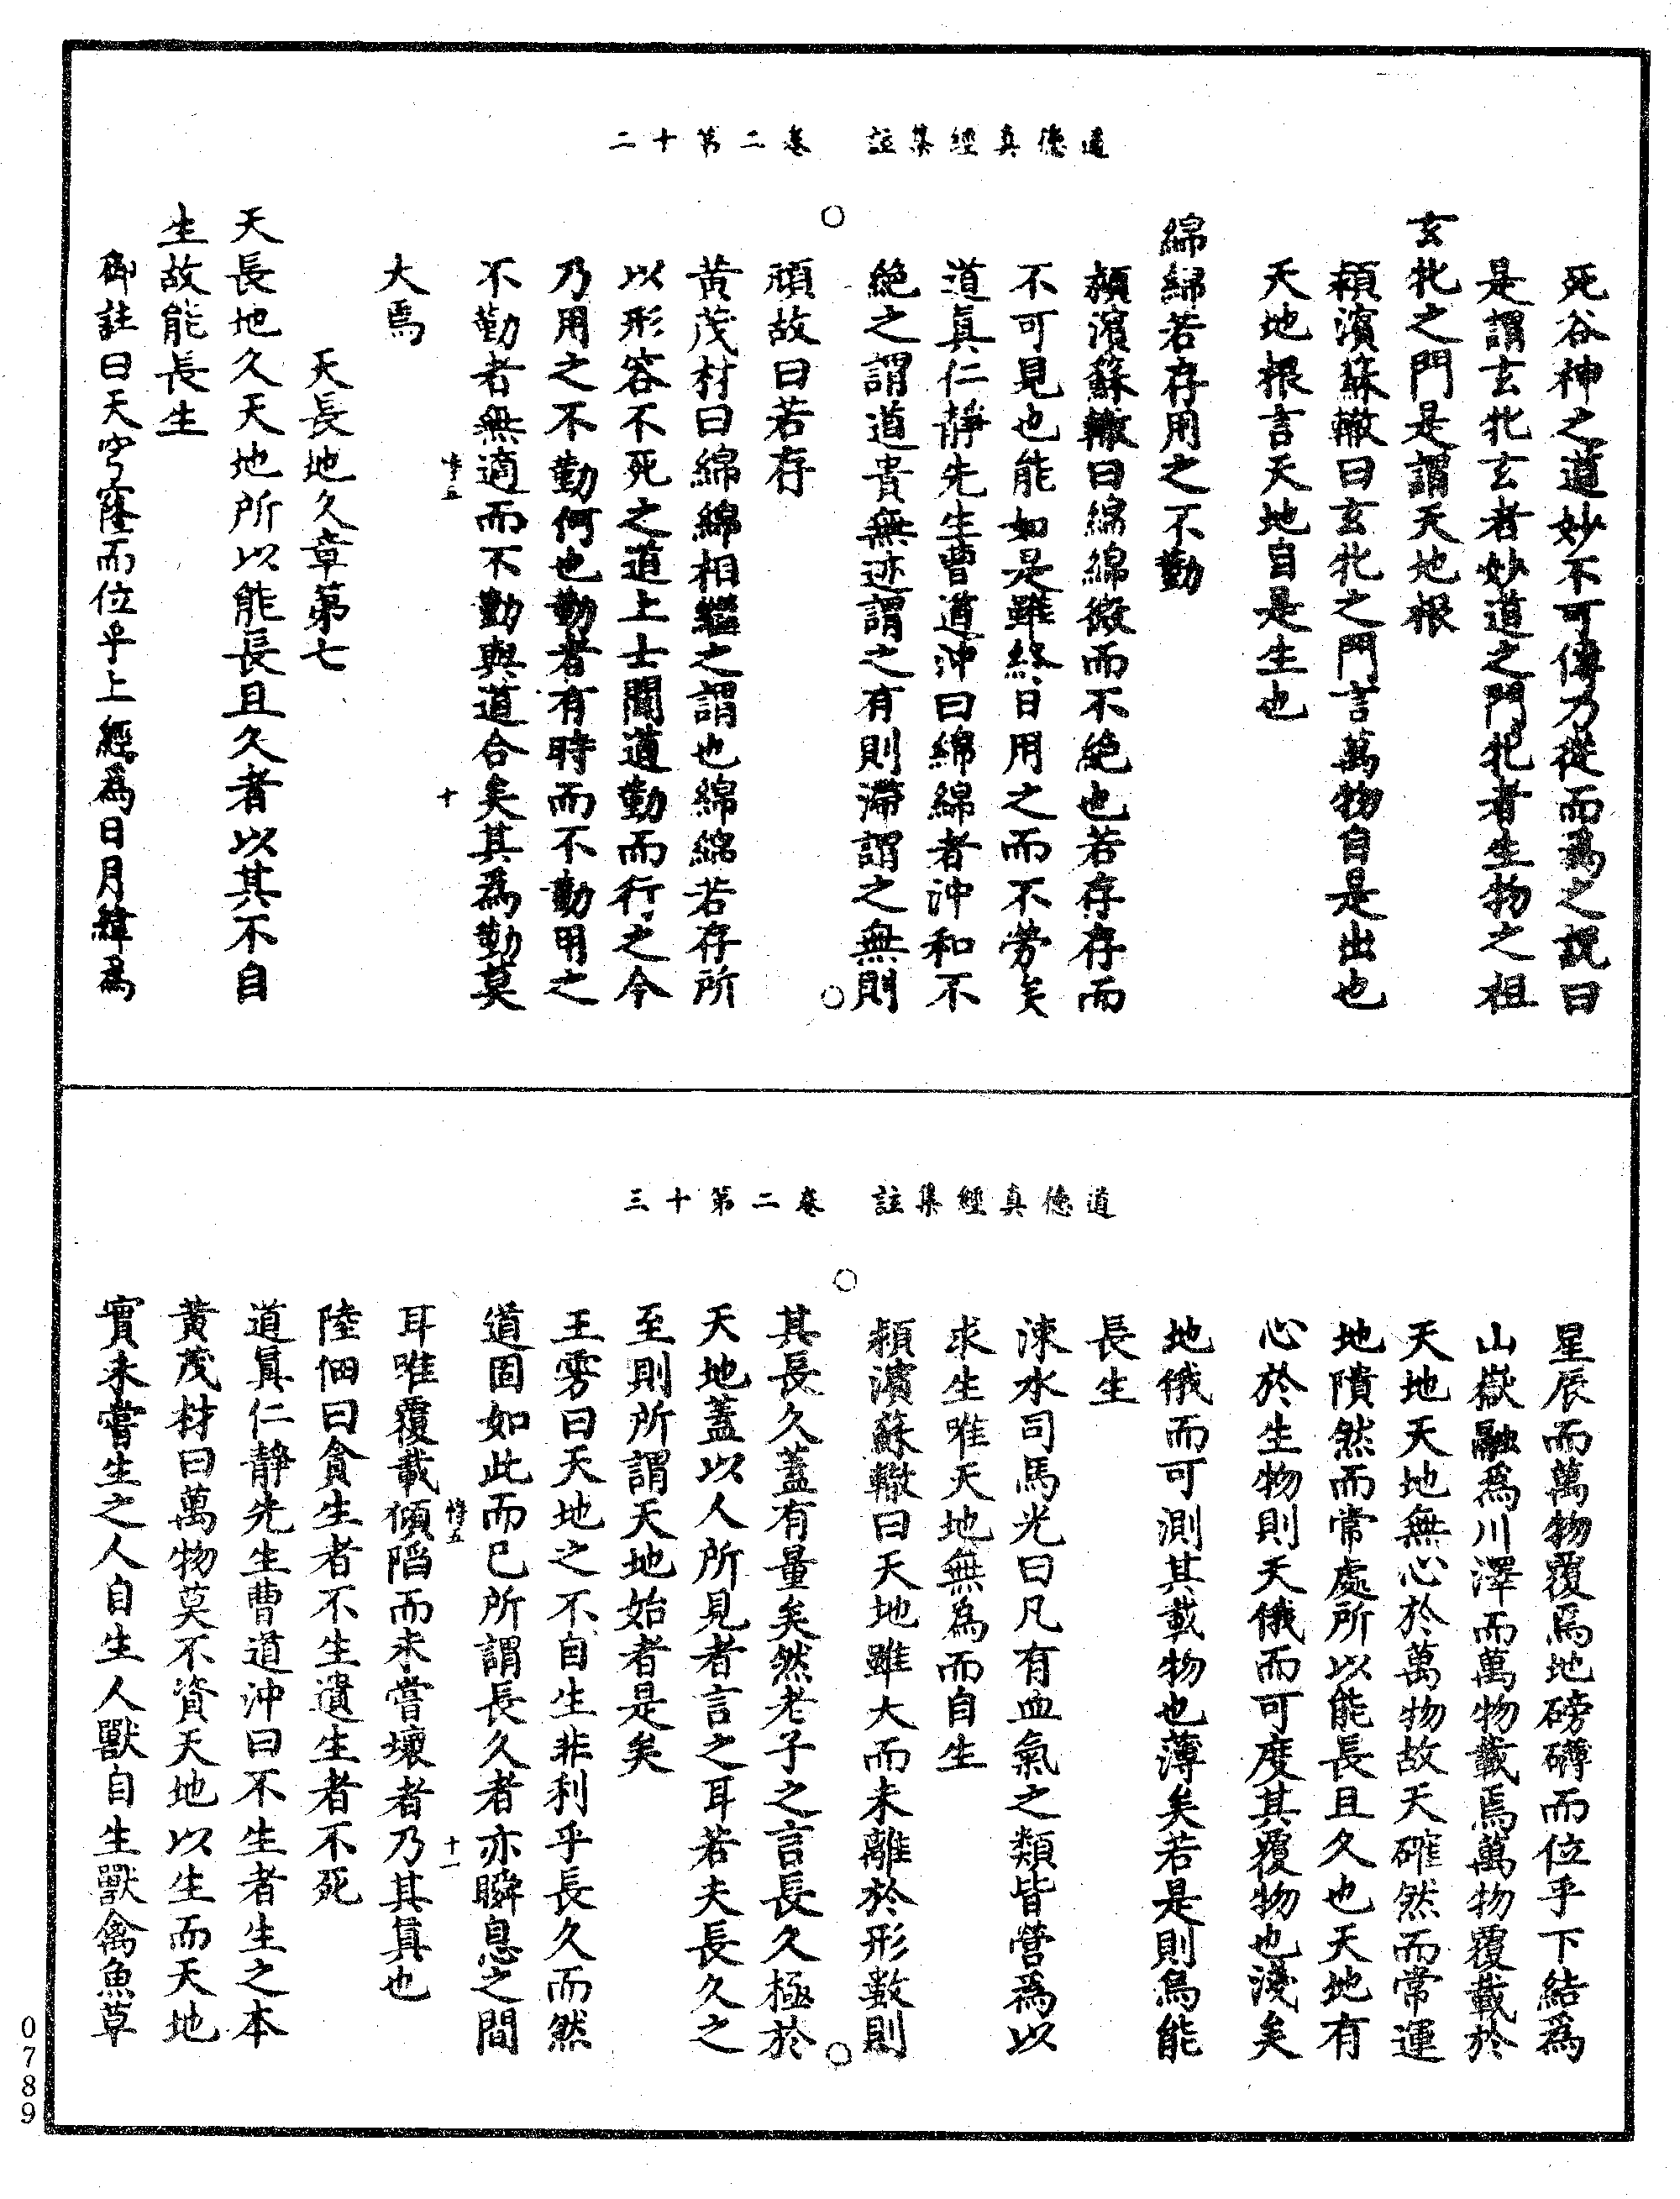 道德真經集註　卷二第十二
死谷神之道妙不可傳力從而為之說曰
是謂玄牝玄者妙道之門牝者生物之祖
玄牝之門是謂天地根
潁濱蘇轍曰玄牝之門言萬物自是出也
天地根言天地自是生也
綿綿若存用之不勤
潁濱蘇轍曰綿綿微而不絕也若存存而
不可見也能如是雖終日用之而不勞矣
道真仁靜先生曹道沖曰綿綿者沖和不
絕之謂道貴無迹謂之有則滯謂之無則
頑故曰若存
黃茂材曰綿綿相繼之謂也綿綿若存所
以形容不死之道上士聞道勤而行之今
乃用之不勤何也勤者有時而不勤用之
不勤者無適而不勤與道合矣其為勤莫
十
大焉
天長地久章第七
天長地久天地所以能長且久者以其不自
生故能長生
御註曰天穹窿而位乎上經為日月緯為
道德真經集註　卷二第十三
星辰而萬物覆焉地磅礴而位乎下結為
山嶽融為川澤而萬物載焉萬物覆載於
天地天地無心於萬物故天確然而常運
地隤然而常處所以能長且久也天地有
心於生物則天俄而可度其覆物也淺矣
地俄而可測其載物也薄矣若是則烏能
長生
涑水司馬光曰凡有血氣之類皆營為以
求生唯天地無為而自生
潁濱蘇轍曰天地雖大而未離於形數則
其長久蓋有量矣然老子之言長久極於
天地蓋以人所見者言之耳若夫長久之
至則所謂天地始者是矣
王雱曰天地之不自生非利乎長久而然
道固如此而已所謂長久者亦瞬息之間
十一
耳唯覆載傾陷而未嘗壞者乃其真也
陸佃曰貪生者不生遺生者不死
道真仁靜先生曹道沖曰不生者生之本
黃茂材曰萬物莫不資天地以生而天地
實未嘗生之人自生人獸自生獸禽魚草
0789